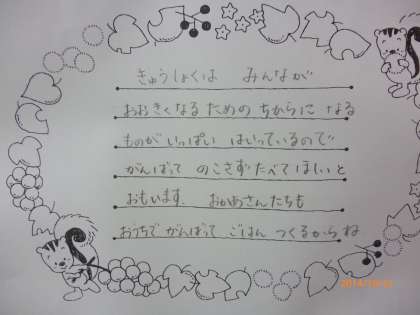 きゅうしょくは みんなが
おおきくなる ための ちからに なる
ものが いっぱい はいっているので
がんばって のこさず たべて ほしいと
おもいます。 おかあさんたちも
おうちで がんばって ごはん つくるからね